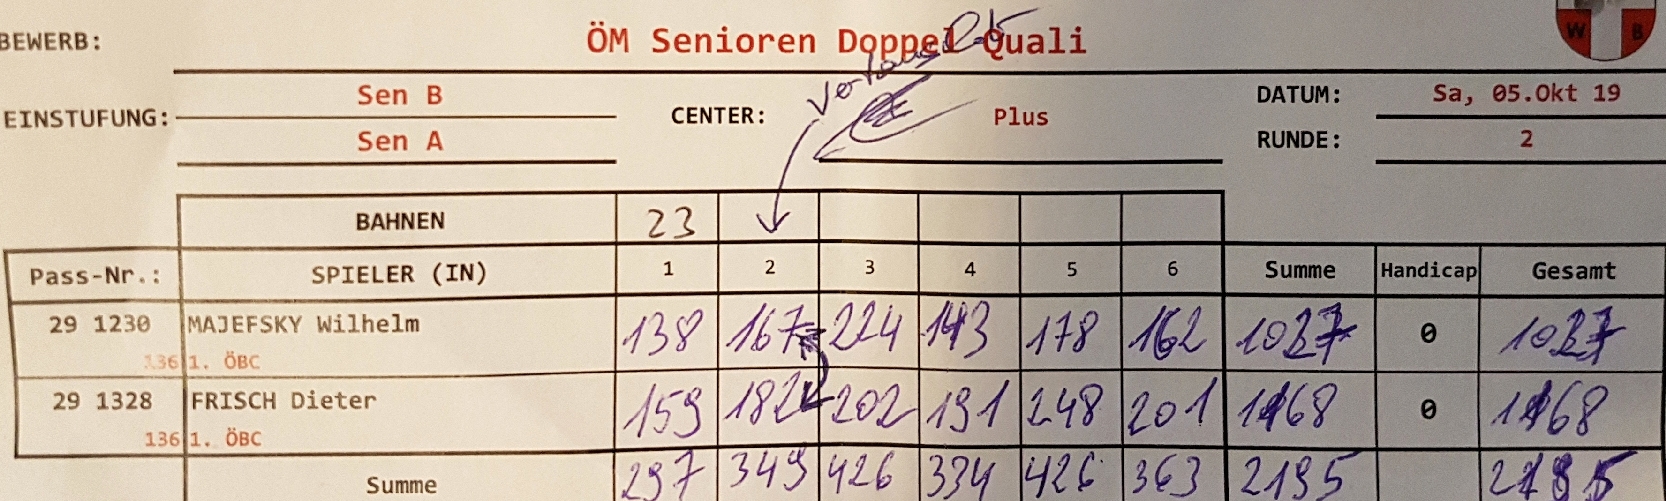 BEWERB: ÖM Senioren Doppel Quali W B
Sen B DATUM: Sa, 05.Okt 19
EINSTUFUNG: CENTER: Plus
Sen A RUNDE: 2
BAHNEN 23
Pass-Nr.: SPIELER (IN) 1 2 3 4 5 6 Summe Handicap Gesamt
29 1230 MAJEFSKY Wilhelm 138 167 224 143 178 162 1027 0 1027
136 1. ÖBC
29 1328 FRISCH Dieter 159 182 202 191 248 201 1168 0 1168
136 1. ÖBC
Summe 297 349 426 334 426 363 2195 2195